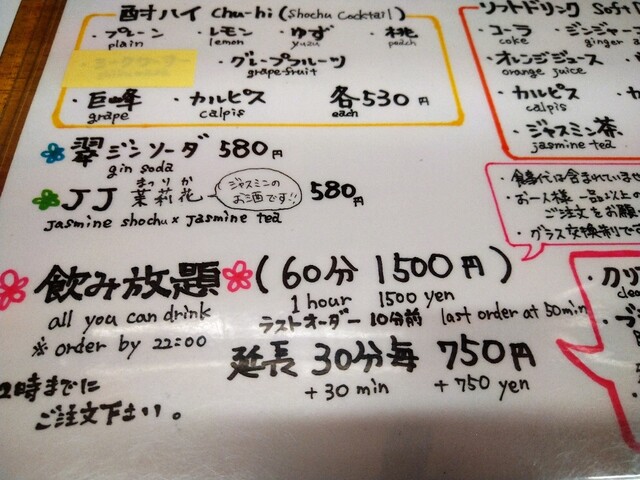 酎ハイ chu-hi (Shochu Cocktail)
・プレーン ・レモン ・ゆず ・桃
plain lemon yuzu peach
・グレープフルーツ
grape-fruit
・巨峰 ・カルピス 各530円
grape calpis each
翠ジンソーダ 580円
gin soda
まつりか
JJ 茉莉花 ジャスミンのお酒です!! 580円
jasmine shochu x jasmine tea
飲み放題 (60分 1500円)
all you can drink 1 hour 1500 yen
ラストオーダー 10分前 last order at 50min
※ order by 22:00
延長 30分毎 750円
+30 min +750 yen
2時までに
ご注文下さい。
ソフトドリンク Soft
・コーラ ・ジンジャー
coke ginger a
・オレンジジュース
orange juice
・カルピス
calpis
・ジャスミン茶
jasmine tea
・お一人様 一品以上の
ご注文をお願い
・グラス交換制です